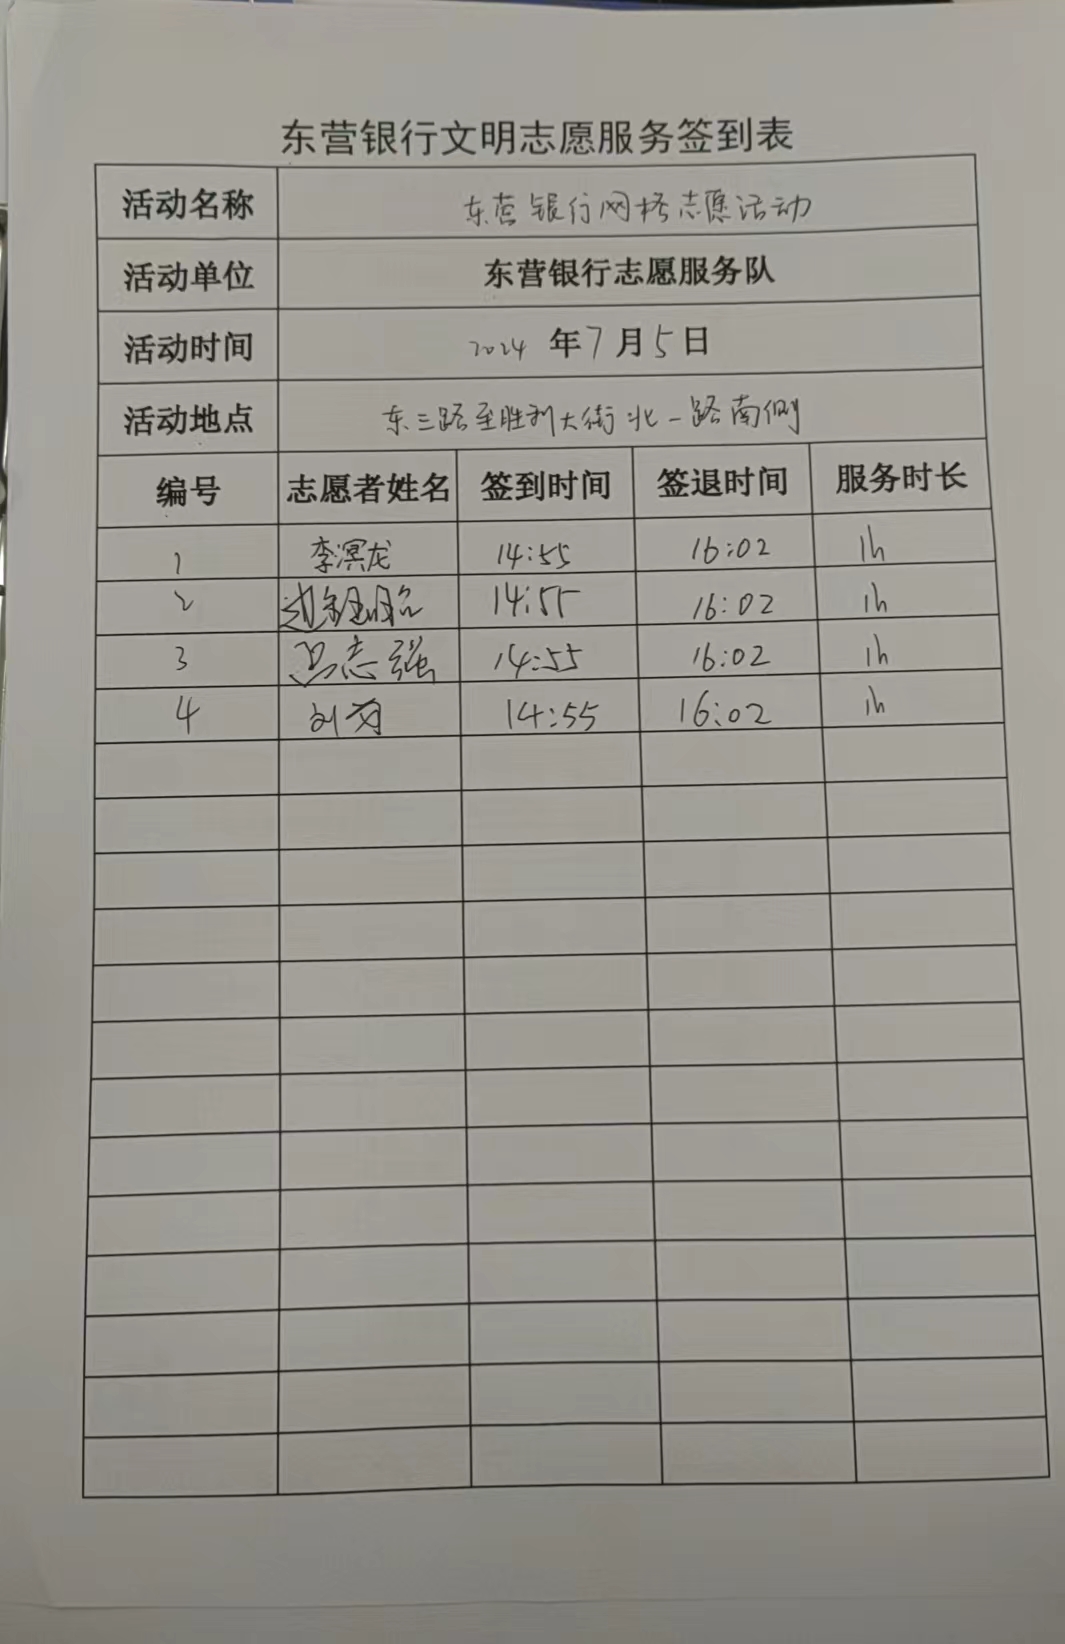 东营银行文明志愿服务签到表
活动名称 东营银行网格志愿活动
活动单位 东营银行志愿服务队
活动时间 2024 年7月5日
活动地点 东三路至胜利大街北一路南侧
编号 志愿者姓名 签到时间 签退时间 服务时长
1 李溟龙 14:55 16:02 1h
2 14:55 16:02 1h
3 志强 14:55 16:02 1h
4 刘 14:55 16:02 1h